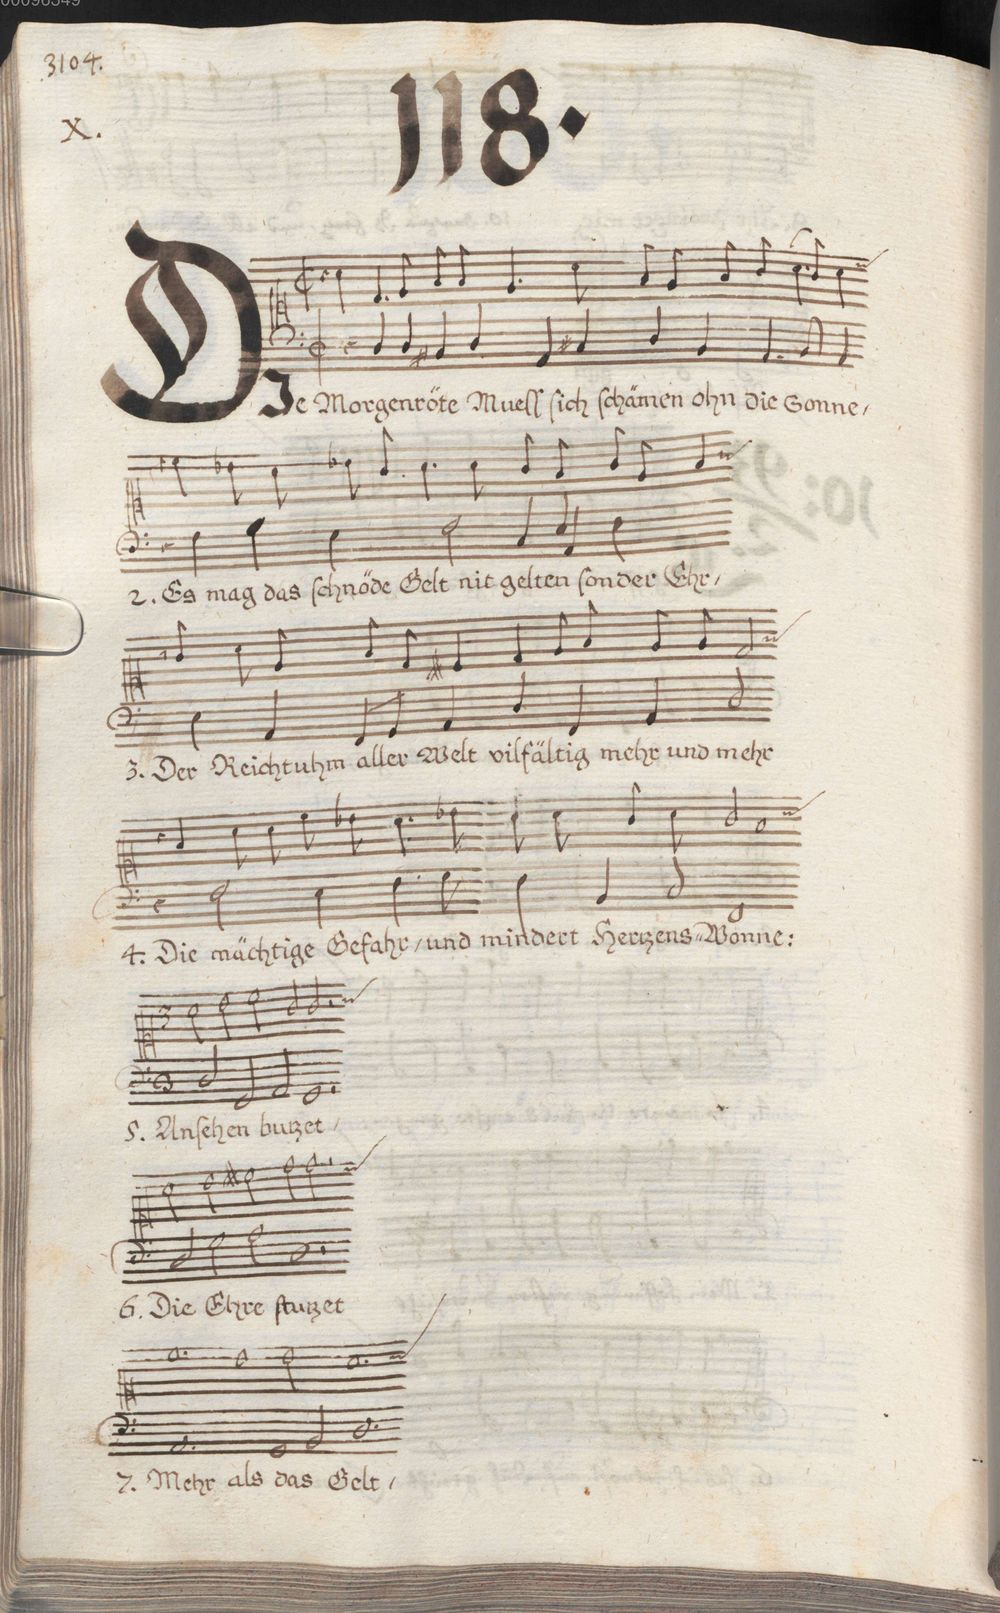 00098349
3104.
X.
118.
DIe Morgenröte Muess sich schämen ohn die Sonne,
2. Es mag das schnöde Gelt nit gelten sonder Ehr,
3. Der Reichtuhm aller Welt vilfältig mehr und mehr
4. Die mächtige Gefahr, und mindert Hertzens=Wonne:
5. Ansehen butzet,
6. Die Ehre stutzet
7. Mehr als das Gelt,